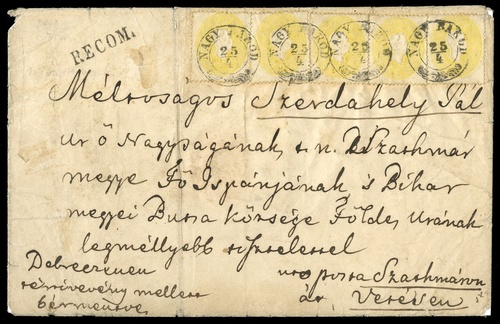 RECOM.
NAGY BÁROD 25/4 NAGY BÁROD 25/4 NAGY BÁROD 25/4 NAGY BÁROD 25/4
Méltóságos Szerdahely Pál
úr ő Nagyságának, s n. Szathmár
megye Fő Ispánjának 's Bihar
megyei Bura községe Földes Urának
legmélyebb tisztelettel
Debreczenen
térítvény mellett
bérmentve
uto posta Szathmáron
át,